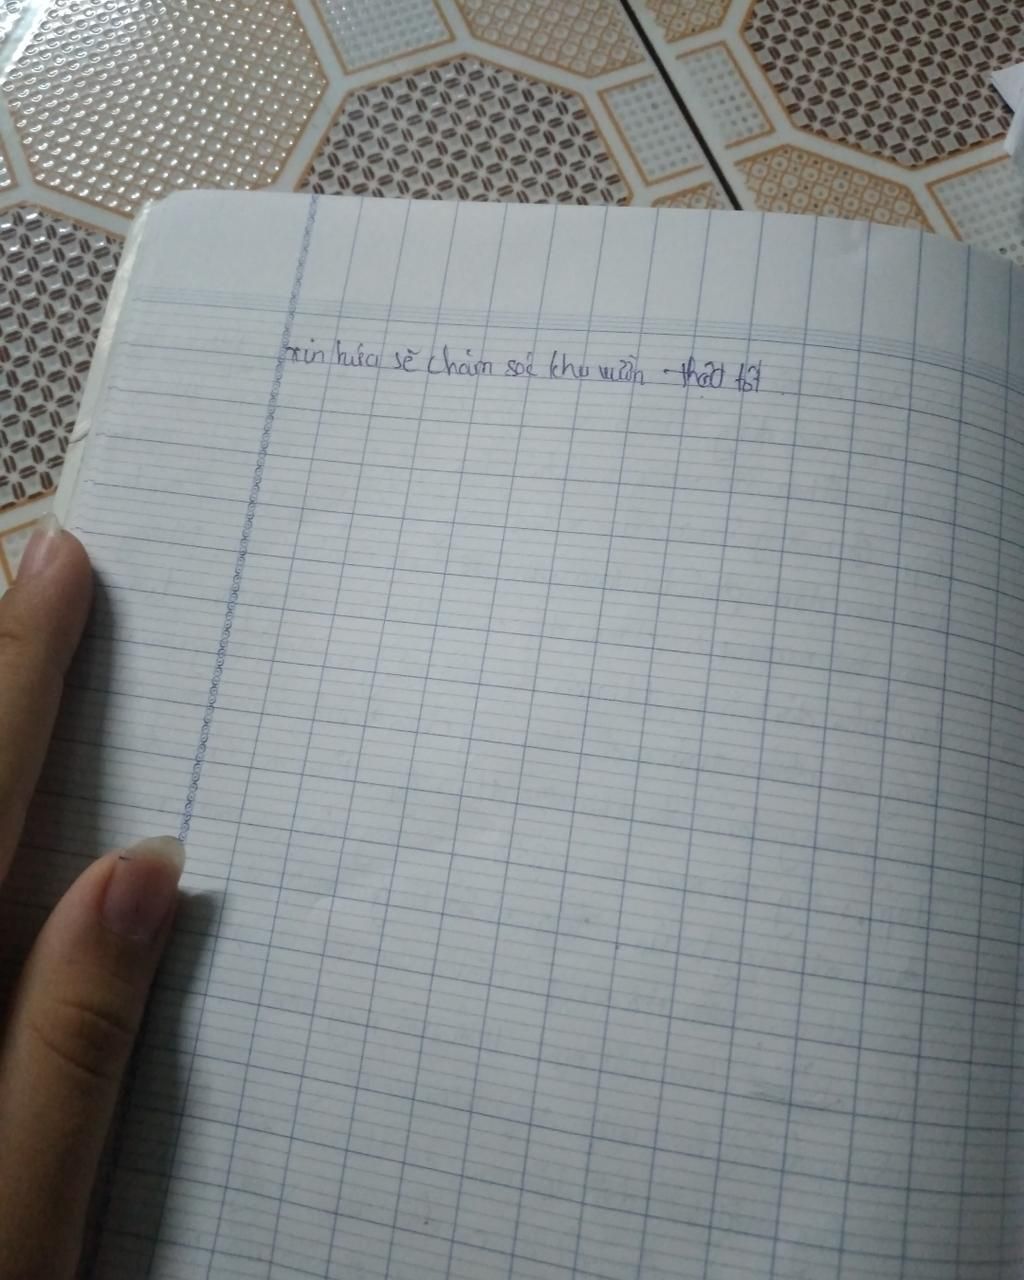 xin hứa sẽ chăm soc khu vườn thật tốt